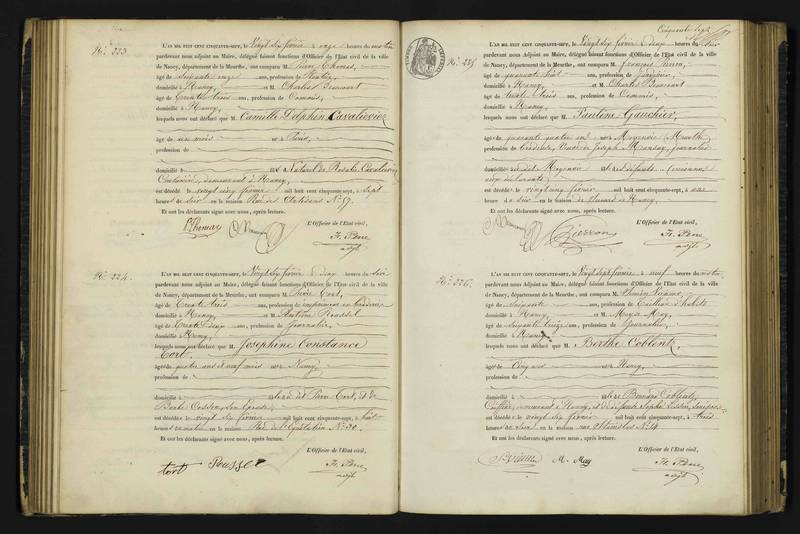 N.º 223.
L'AN MIL HUIT CENT CINQUANTE-SEPT, le vingt six février à onze heures du matin
pardevant nous Adjoint au Maire, délégué faisant fonctions d'Officier de l'État civil de la ville
de Nancy, département de la Meurthe, ont comparu M. Thomas,
âgé de soixante onze ans, profession de Rentier,
domicilié à Nancy, et M. Charles Beaucourt
âgé de trente trois ans, profession de Commis,
domicilié à Nancy,
lesquels nous ont déclaré que M. Camille Delphin Cavalievier
âgé de un mois né à Paris,
profession de
domicilié à Naturel de Rosalie Cavalievier
Cuisinière, demeurant à Nancy,
est décédé le vingt cinq février mil huit cent cinquante-sept, à sept
heures du soir en la maison Rue des N.º 57.
Et ont les déclarants signé avec nous, après lecture.
L'Officier de l'État civil,
P. Thomas
adjt
N.º 224.
L'AN MIL HUIT CENT CINQUANTE-SEPT, le vingt six février à deux heures du soir
pardevant nous Adjoint au Maire, délégué faisant fonctions d'Officier de l'État civil de la ville
de Nancy, département de la Meurthe, ont comparu M. Pierre Tort,
âgé de trente trois ans, profession de imprimeur en broderie
domicilié à Nancy, et M. Roussel
âgé de trente deux ans, profession de journalier,
domicilié à Nancy,
lesquels nous ont déclaré que M. Josephine Constance
Tort,
âgée de quatre ans et neuf mois née à Nancy,
profession de
domicilié à fille de dit Pierre Tort, et de
son épouse
est décédée le vingt six février mil huit cent cinquante-sept, à huit
heures du matin en la maison Rue de l'Équitation N.º 20.
Et ont les déclarants signé avec nous, après lecture.
L'Officier de l'État civil,
tort Roussel
adjt
Cinquante sept
N.º 225.
L'AN MIL HUIT CENT CINQUANTE-SEPT, le vingt six février à deux heures du soir
pardevant nous Adjoint au Maire, délégué faisant fonctions d'Officier de l'État civil de la ville
de Nancy, département de la Meurthe, ont comparu M. François Pierron,
âgé de quarante huit ans, profession de jardinier,
domicilié à Nancy, et M. Charles Beaucourt
âgé de trente trois ans, profession de Commis,
domicilié à Nancy,
lesquels nous ont déclaré que M. Pauline Gauchier,
âgée de quarante quatre ans née à Moyenvic (Meurthe)
profession de Veuve de Joseph journalier
domiciliée au dit Moyenvic
est décédée le vingt cinq février mil huit cent cinquante-sept, à onze
heures du soir en la maison de de Nancy,
Et ont les déclarants signé avec nous, après lecture.
L'Officier de l'État civil,
Pierron
adjt
N.º 226.
L'AN MIL HUIT CENT CINQUANTE-SEPT, le vingt sept février à neuf heures du matin
pardevant nous Adjoint au Maire, délégué faisant fonctions d'Officier de l'État civil de la ville
de Nancy, département de la Meurthe, ont comparu M.
âgé de soixante ans, profession de tailleur d'habits
domicilié à Nancy, et M. Meyer May,
âgé de soixante treize ans, profession de journalier,
domicilié à Nancy,
lesquels nous ont déclaré que M. Berthe Coblentz,
âgée de cinq ans née à Nancy,
profession de
domicilié à fille de Bernard Coblentz,
demeurant à Nancy,
est décédée le vingt six février mil huit cent cinquante-sept, à trois
heures du soir en la maison rue Stanislas N.º 14
Et ont les déclarants signé avec nous, après lecture.
L'Officier de l'État civil,
M. May
adjt